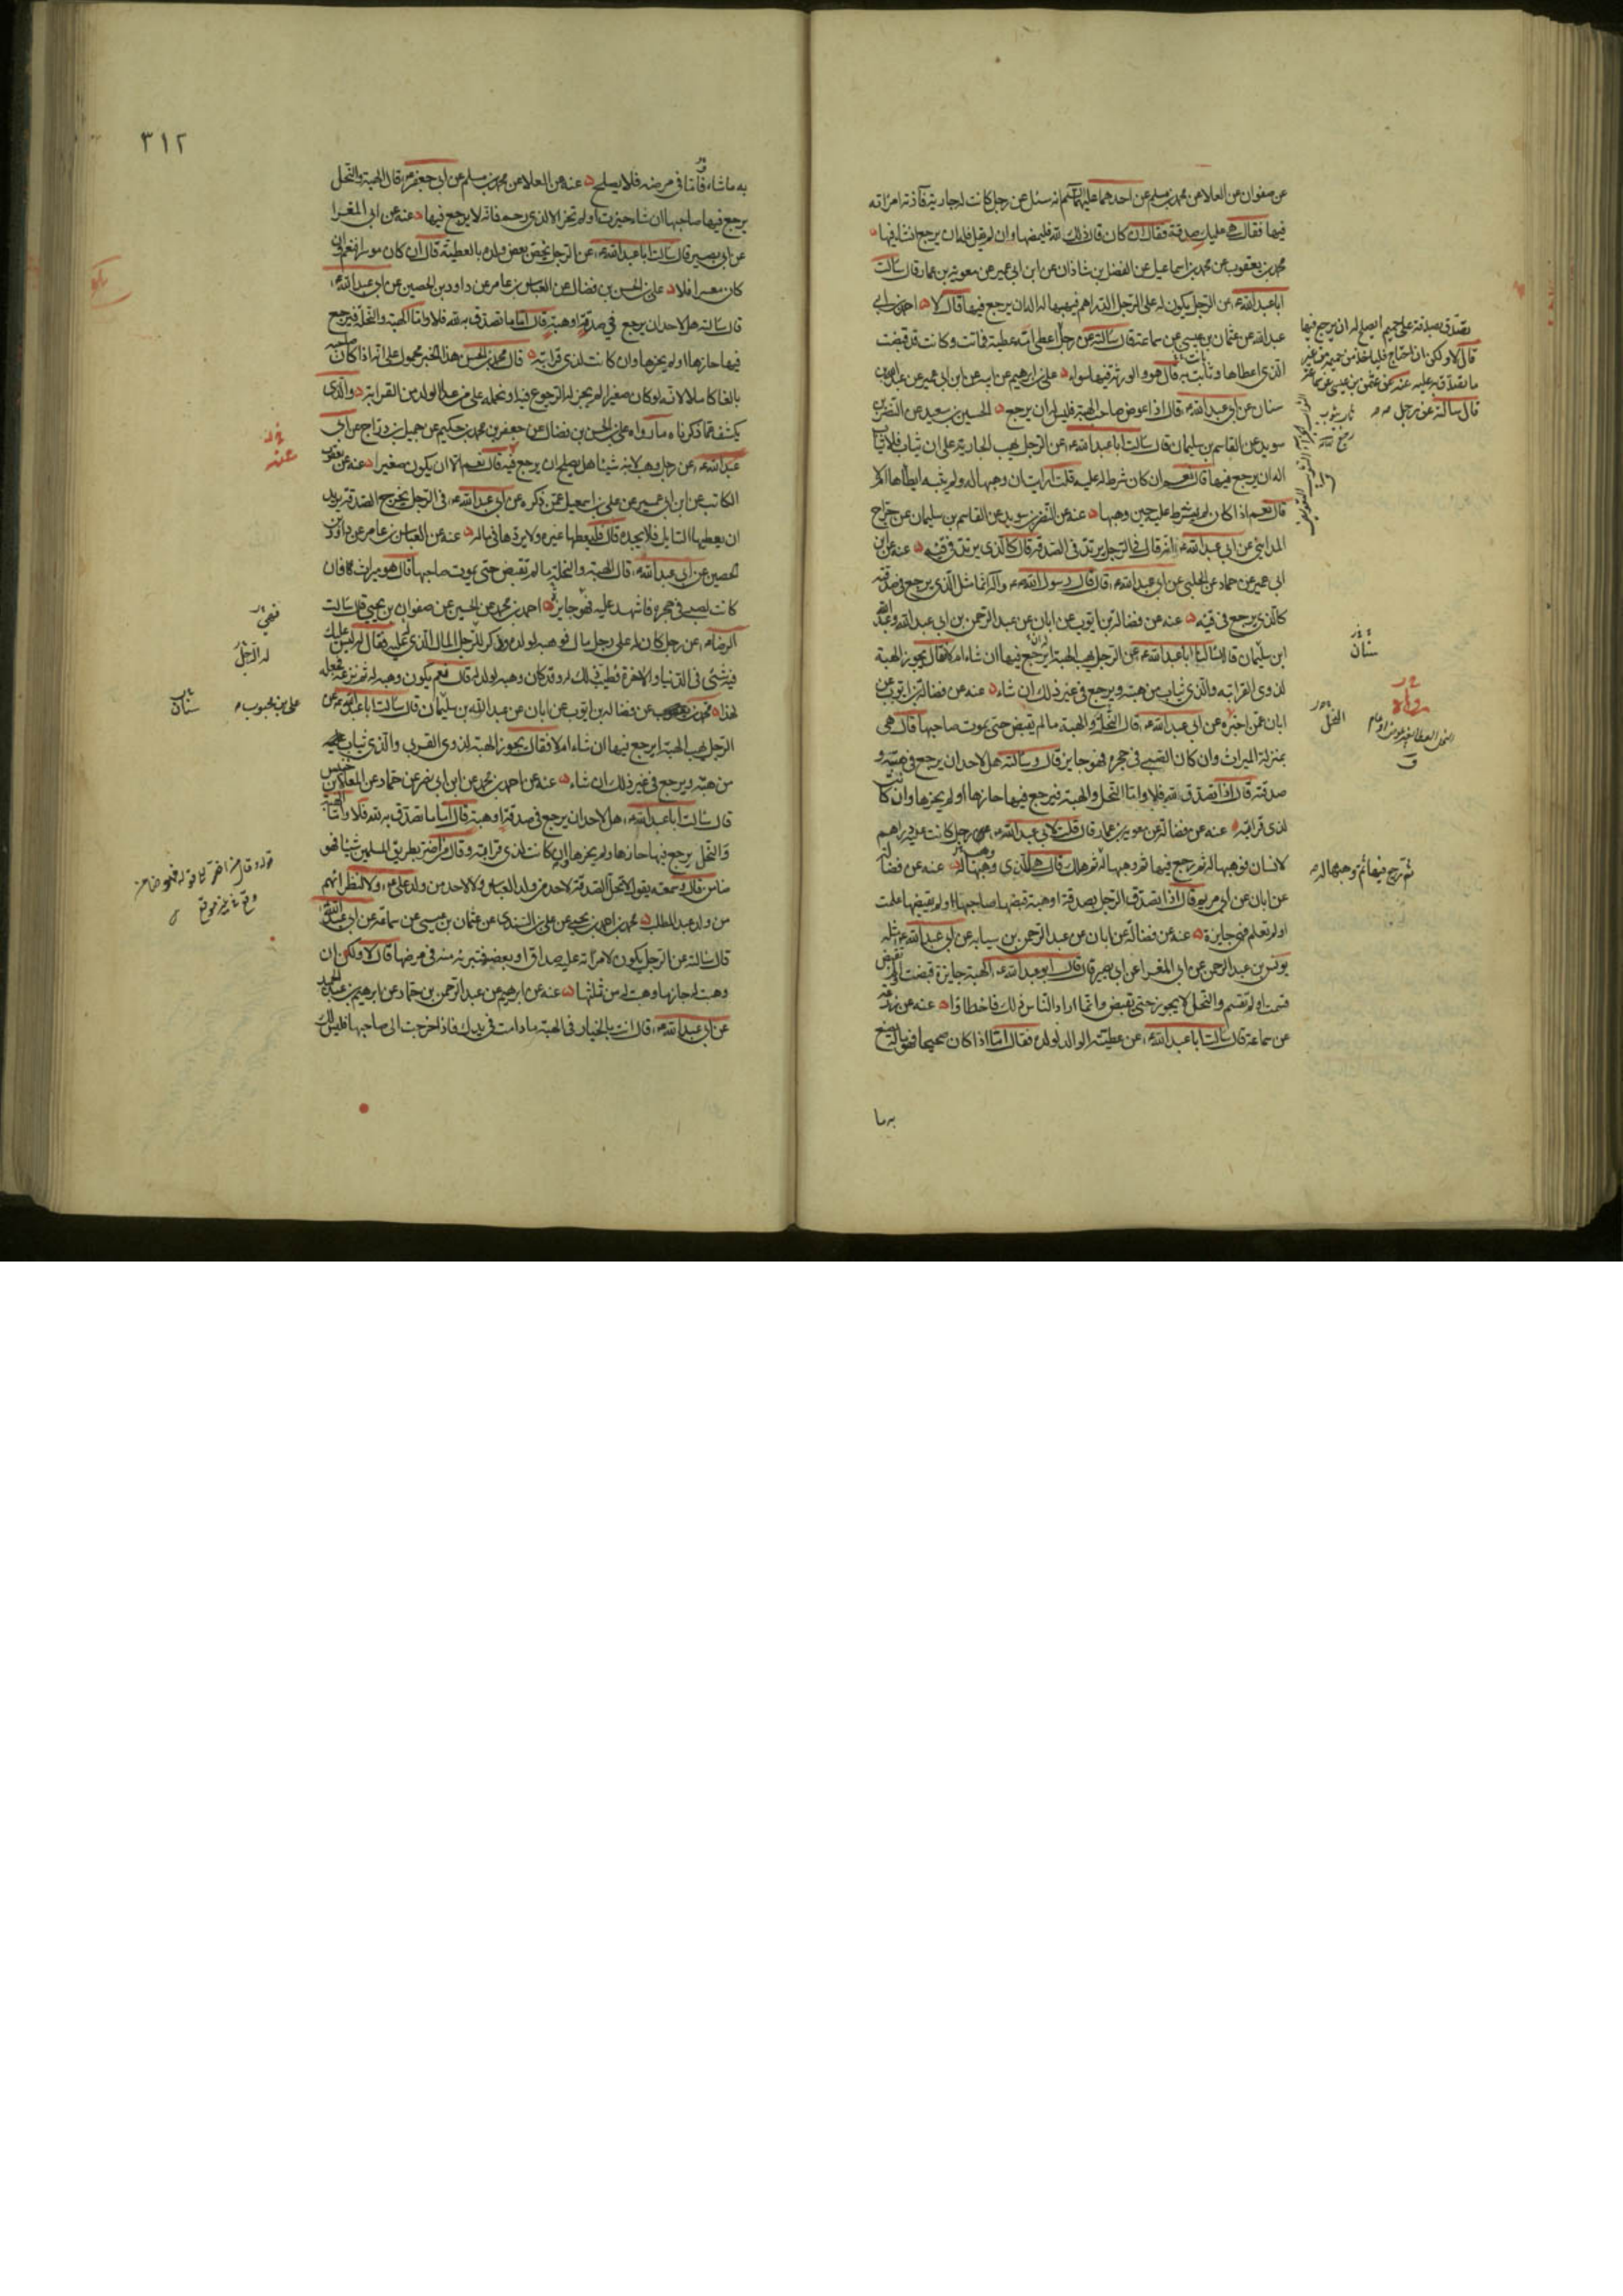 عن صفوان عن العلا عن محمد بن مسلم عن احدهما عليهما السلم انه سئل عن رجل كانت له جارية فآذته امراته
فيها فقال هي عليك صدقة فقال ان كان قال ذلك لله فليمضها وان لم يقل فله ان يرجع ان شاء فيها
محمد بن يعقوب عن محمد بن اسماعيل عن الفضل بن شاذان عن ابن ابي عمير عن معوية بن عمار قال سالت
ابا عبد الله ع عن الرجل يكون له على الرجل الدراهم فيهبها له اله ان يرجع فيها قال لا احمد بن ابي
عبد الله عن عثمان بن عيسى عن سماعة قال سالته عن رجل اعطى امه عطية فماتت وكانت قد قبضت
الذي اعطاها وبانت به قال هو والورثة فيها سواء علي بن ابراهيم عن ابيه عن ابن ابي عمير عن عبد الله بن
سنان عن ابي عبد الله ع قال اذا عوض صاحب الهبة فليس له ان يرجع الحسين بن سعيد عن النضر بن
سويد عن القاسم بن سليمان قال سالت ابا عبد الله ع عن الرجل يهب الجارية على ان يثاب فلا يثاب
اله ان يرجع فيها قال نعم ان كان شرط له عليه قلت ارايت ان وهبها له ولم يثبه ايطأها ام لا
قال نعم اذا كان لم يشترط عليه حين وهبها عنه عن النضر بن سويد عن القاسم بن سليمان عن جراح
المدايني عن ابي عبد الله ع انه قال في الرجل يرتد في الصدقة قال كالذي يرتد في قيئه عنه عن ابن
ابي عمير عن حماد عن الحلبي عن ابي عبد الله ع قال قال رسول الله ص وآله انما مثل الذي يرجع في صدقته
كالذي يرجع في قيئه عنه عن فضالة بن ايوب عن ابان عن عبد الرحمن بن ابي عبد الله وعبد الله
ابن سليمان قالا سالنا ابا عبد الله ع عن الرجل يهب الهبة ايرجع فيها ان شاء ام لا فقال يجوز الهبة
لذوي القرابة والذي يثاب من هبته ويرجع في غير ذلك ان شاء عنه عن فضالة بن ايوب عن
ابان عمن اخبره عن ابي عبد الله ع قال النحلة والهبة ما لم تقبض حتى يموت صاحبها قال هي
بمنزلة الميراث وان كان الصبي في حجره فهو جايز قال وسالته هل لاحد ان يرجع في هبته و
صدقته قال اذا تصدق لله فلا واما النحل والهبة فيرجع فيها حازها او لم يحزها وان كانت
لذي قرابة عنه عن فضالة عن معوية بن عمار قال قلت لابي عبد الله ع رجل كانت عليه دراهم
لانسان فوهبها له ثم رجع فيها ثم وهبها له ثم هلك قال هي للذي وهبها له عنه عن فضالة
عن ابان عن ابي مريم قال اذا تصدق الرجل بصدقة او هبة قبضها صاحبها او لم يقبضها علمت
او لم تعلم فهي جايزة عنه عن فضالة عن ابان عن عبد الرحمن بن سيابه عن ابي عبد الله ع مثله
يونس بن عبد الرحمن عن ابي المغرا عن ابي بصير قال قال ابو عبد الله ع الهبة جايزة قبضت او لم تقبض
قسمت او لم تقسم والنحل لا يجوز حتى تقبض وانما اراد الناس ذلك فاخطاوا عنه عن زرعة
عن سماعة قال سالت ابا عبد الله ع عن عطية الوالد لولده فقال اما اذا كان صحيحا فهو ماله يصنع
به ما
تصدق بصدقة على حميم ايصلح له ان يرجع فيها
قال لا ولكن ان احتاج فلياخذ من حميمه من غير
ما تصدق به عليه عنه عن عثمن بن عيسى عن سماعة
قال سالته عن رجل
سنان
رواه
النحل
ثم رجع فيها ثم وهبها له
٣١٢
به ما شاء فاما في مرضه فلا يصلح عنه عن العلا عن محمد بن مسلم عن ابي جعفر ع قال الهبة والنحل
يرجع فيها صاحبها ان شاء حيزت او لم تحز الا لذي رحم فانه لا يرجع فيها عنه عن ابي المغرا
عن ابي بصير قال سالت ابا عبد الله ع عن الرجل يخص بعض ولده بالعطية قال ان كان موسرا فنعم وان
كان معسرا فلا علي بن الحسن بن فضال عن العباس بن عامر عن داود بن الحصين عن ابي عبد الله ع
قال سالته هل لاحد ان يرجع في صدقة او هبة قال اما ما تصدق به لله فلا واما الهبة والنحلة فيرجع
فيها حازها او لم يحزها وان كانت لذي قرابة قال محمد بن الحسن هذا الخبر محمول على انه اذا كان صاحبه
بالغا كاملا لانه لو كان صغيرا لم يجز له الرجوع فيه او نحمله على من عدا الولد من القرابة والذي
يكشف عما ذكرناه ما رواه علي بن الحسن بن فضال عن جعفر بن محمد بن حكيم عن جميل بن دراج عن ابي
عبد الله ع عن رجل وهب لابنه شيئا هل يصلح ان يرجع فيه قال نعم الا ان يكون صغيرا عنه عن يعقوب
الكاتب عن ابن ابي عمير عن علي بن اسمعيل عمن ذكره عن ابي عبد الله ع في الرجل يخرج الصدقة يريد
ان يعطيها السايل فلا يجده قال فليعطها غيره ولا يردها في ماله عنه عن العباس بن عامر عن داود بن
الحصين عن ابي عبد الله ع قال الهبة والنحلة ما لم تقبض حتى يموت صاحبها قال هو ميراث فان
كانت لصبي في حجره فاشهد عليه فهو جايز احمد بن محمد عن الحسين عن صفوان بن يحيى قال سالت
الرضا ع عن رجل كان له على رجل مال فوهبه لولده وذكر له الرجل المال الذي له عليه فقال له ليس عليك
فيه شئ في الدنيا والاخرة فطيب ذلك له وقد كان وهبه لولد له قال نعم يكون وهبه له ثم نزعه فجعله
لهذا محمد بن عن فضالة بن ايوب عن ابان عن عبد الله بن سليمان قال سالت ابا عبد الله ع عن
الرجل يهب الهبة ايرجع فيها ان شاء ام لا فقال يجوز الهبة لذوي القربى والذي يثاب
من هبته ويرجع في غير ذلك ان شاء عنه عن احمد بن محمد عن ابن ابي نصر عن حماد عن المعلى بن خنيس
قال سالت ابا عبد الله ع هل لاحد ان يرجع في صدقة او هبة قال اما ما تصدق به لله فلا واما الهبة
والنحل يرجع فيها حازها او لم يحزها وان كانت لذي قرابة وقال من اضر بطريق المسلمين شيئا فهو
ضامن قال وسمعته يقول لا تحل الصدقة لاحد من ولد العباس ولا لاحد من ولد علي ع ولا لنظرائهم
من ولد عبد المطلب محمد بن احمد بن يحيى عن علي بن السندي عن عثمان بن عيسى عن سماعة عن ابي عبد الله
قال سالته عن الرجل يكون لامراته عليه صداق او بعضه فتبرئه منه في مرضها قال لا ولكن ان
وهبت له جاز ما وهبت له من ثلثها عنه عن ابرهيم عن عبد الرحمن بن حماد عن ابرهيم بن عبد الحميد
عن ابي عبد الله ع قال انت بالخيار في الهبة ما دامت في يدك فاذا خرجت الى صاحبها فليس لك
عنه
له الرجل
علي بن محبوب
سنان